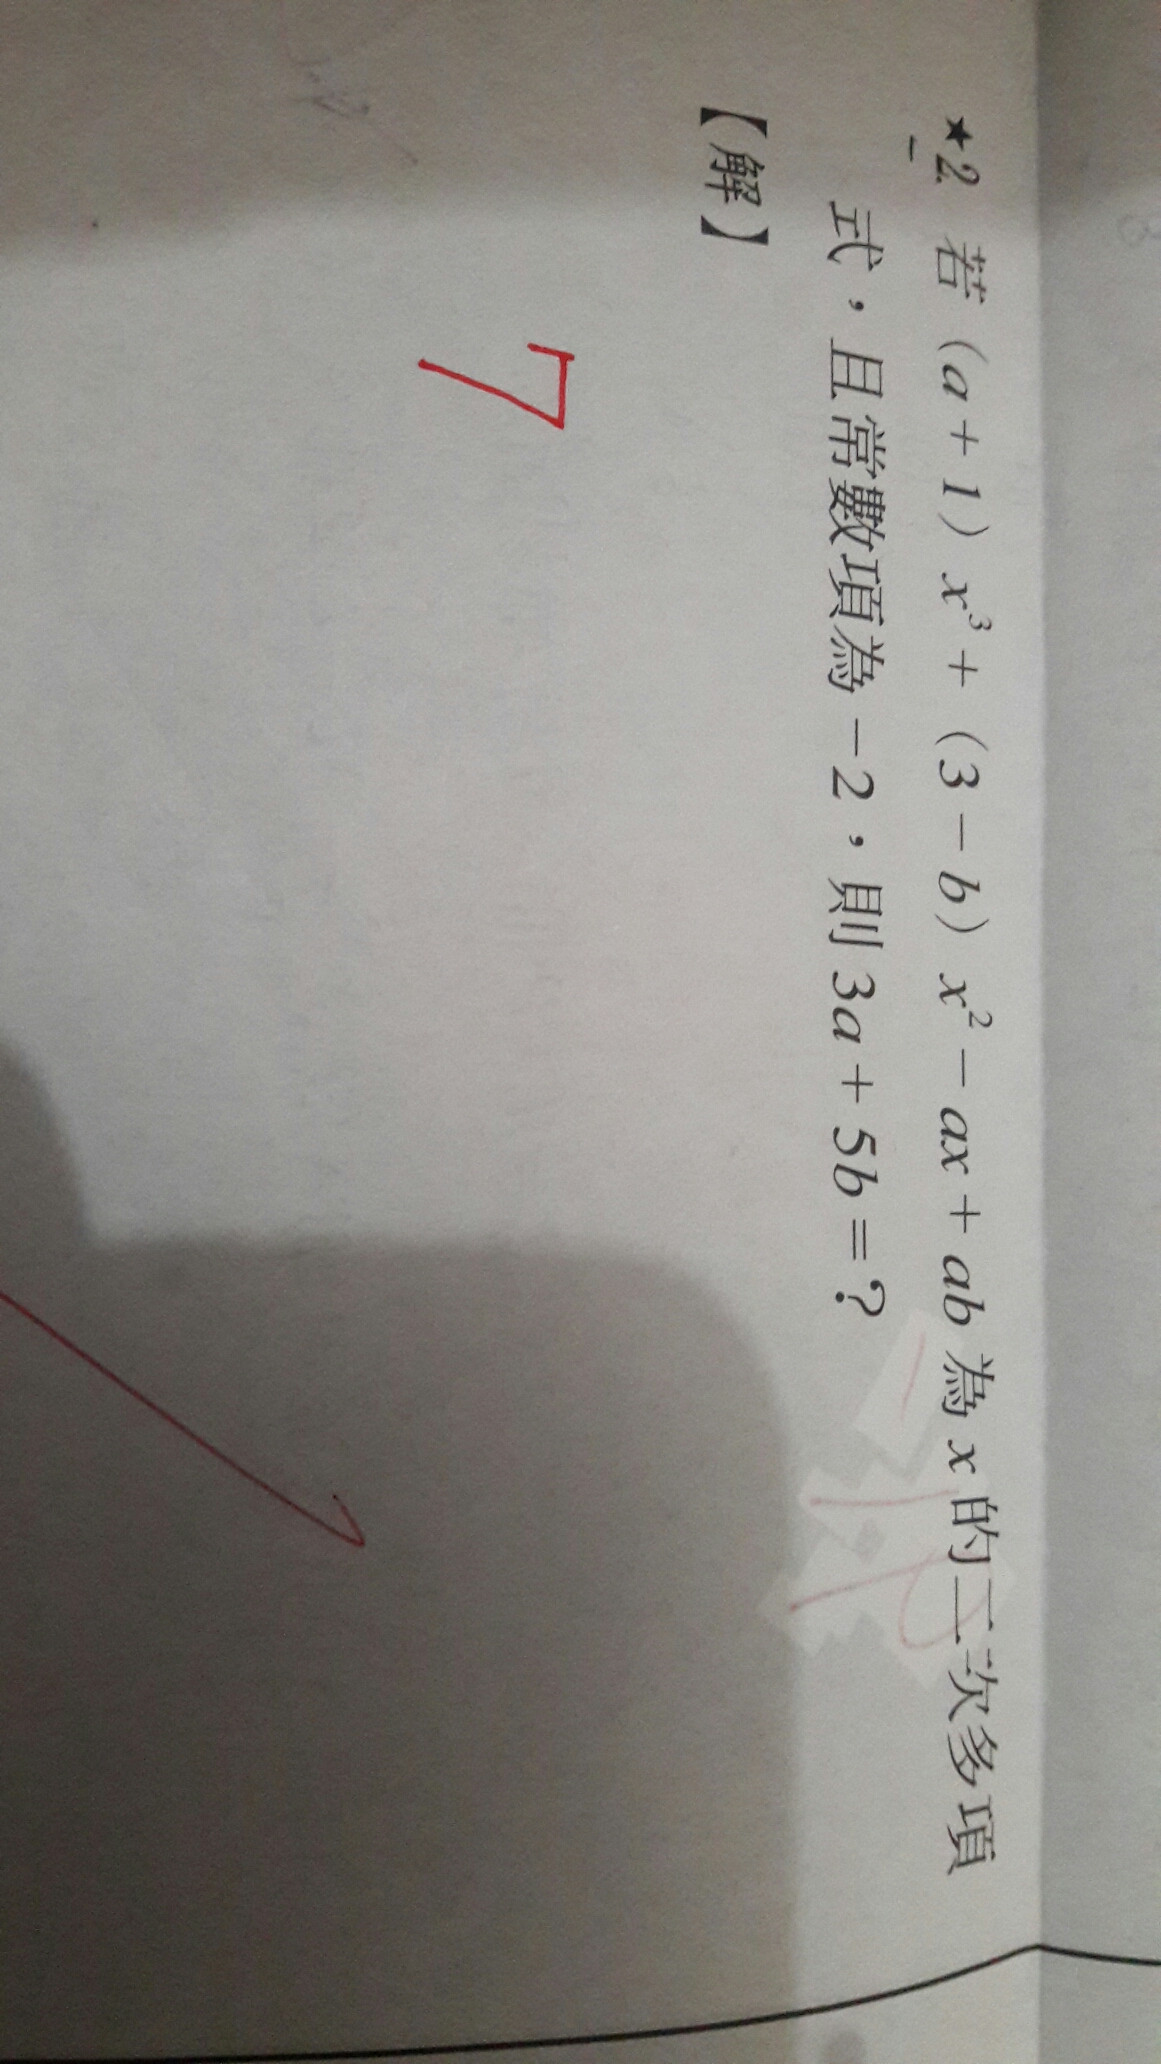 ★2. 若（a＋1）x³＋（3－b）x²－ax＋ab 為 x 的二次多項
式，且常數項為－2，則 3a＋5b＝？
【解】
7